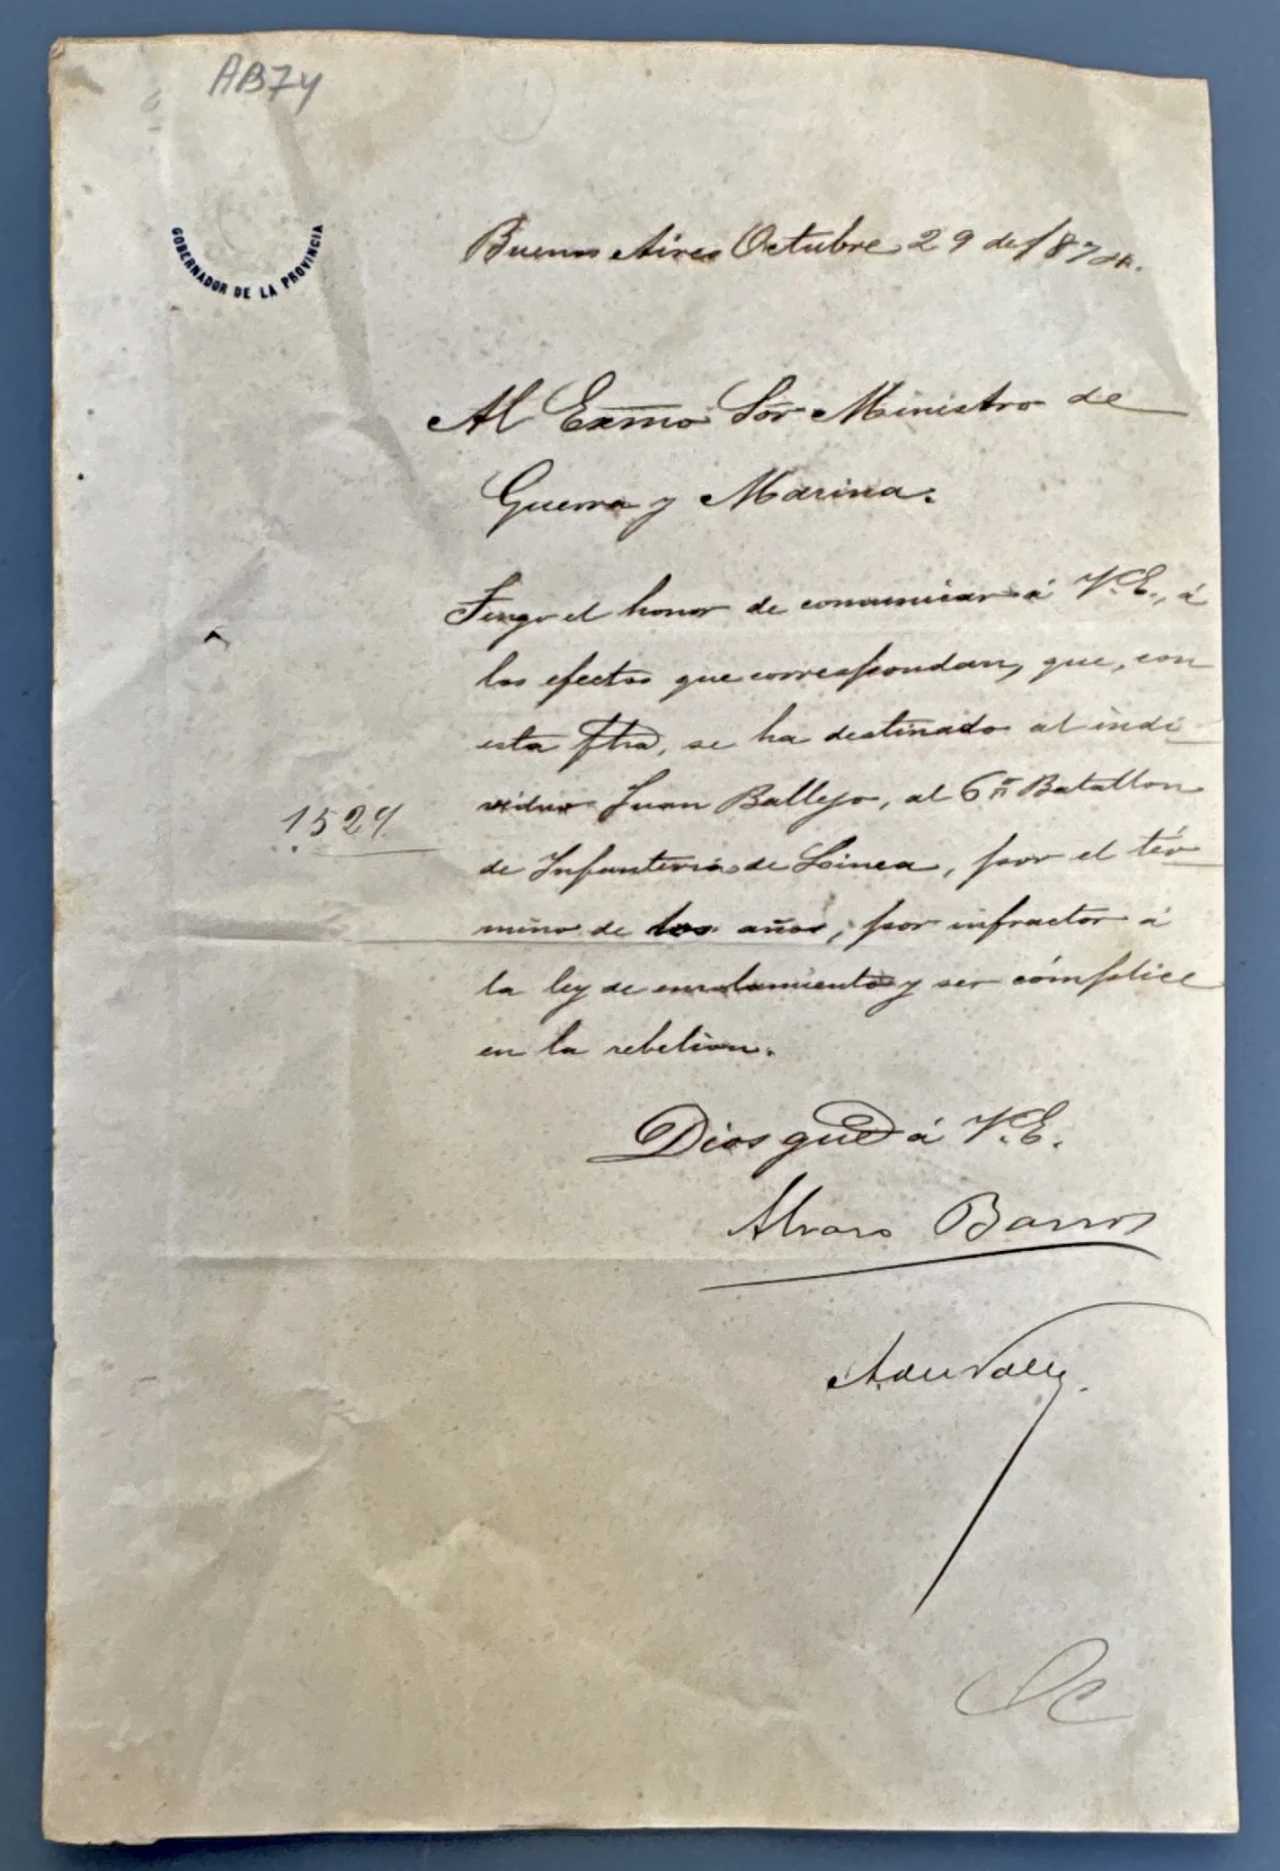 AB74
GOBERNADOR DE LA PROVINCIA
Buenos Aires Octubre 29 de 1874.
Al Exmo Sor Ministro de
Guerra y Marina.
Tengo el honor de comunicar á V.E., á
los efectos que correspondan, que, con
esta fha, se ha destinado al indi
viduo Juan Ballejo, al 6º Batallon
1529
de Infanteria de Linea, por el tér
mino de dos años, por infractor á
la ley de enrolamiento y ser cómplice
en la rebelion.
Dios gue á V.E.
Alvaro Barros
A. del Valle.